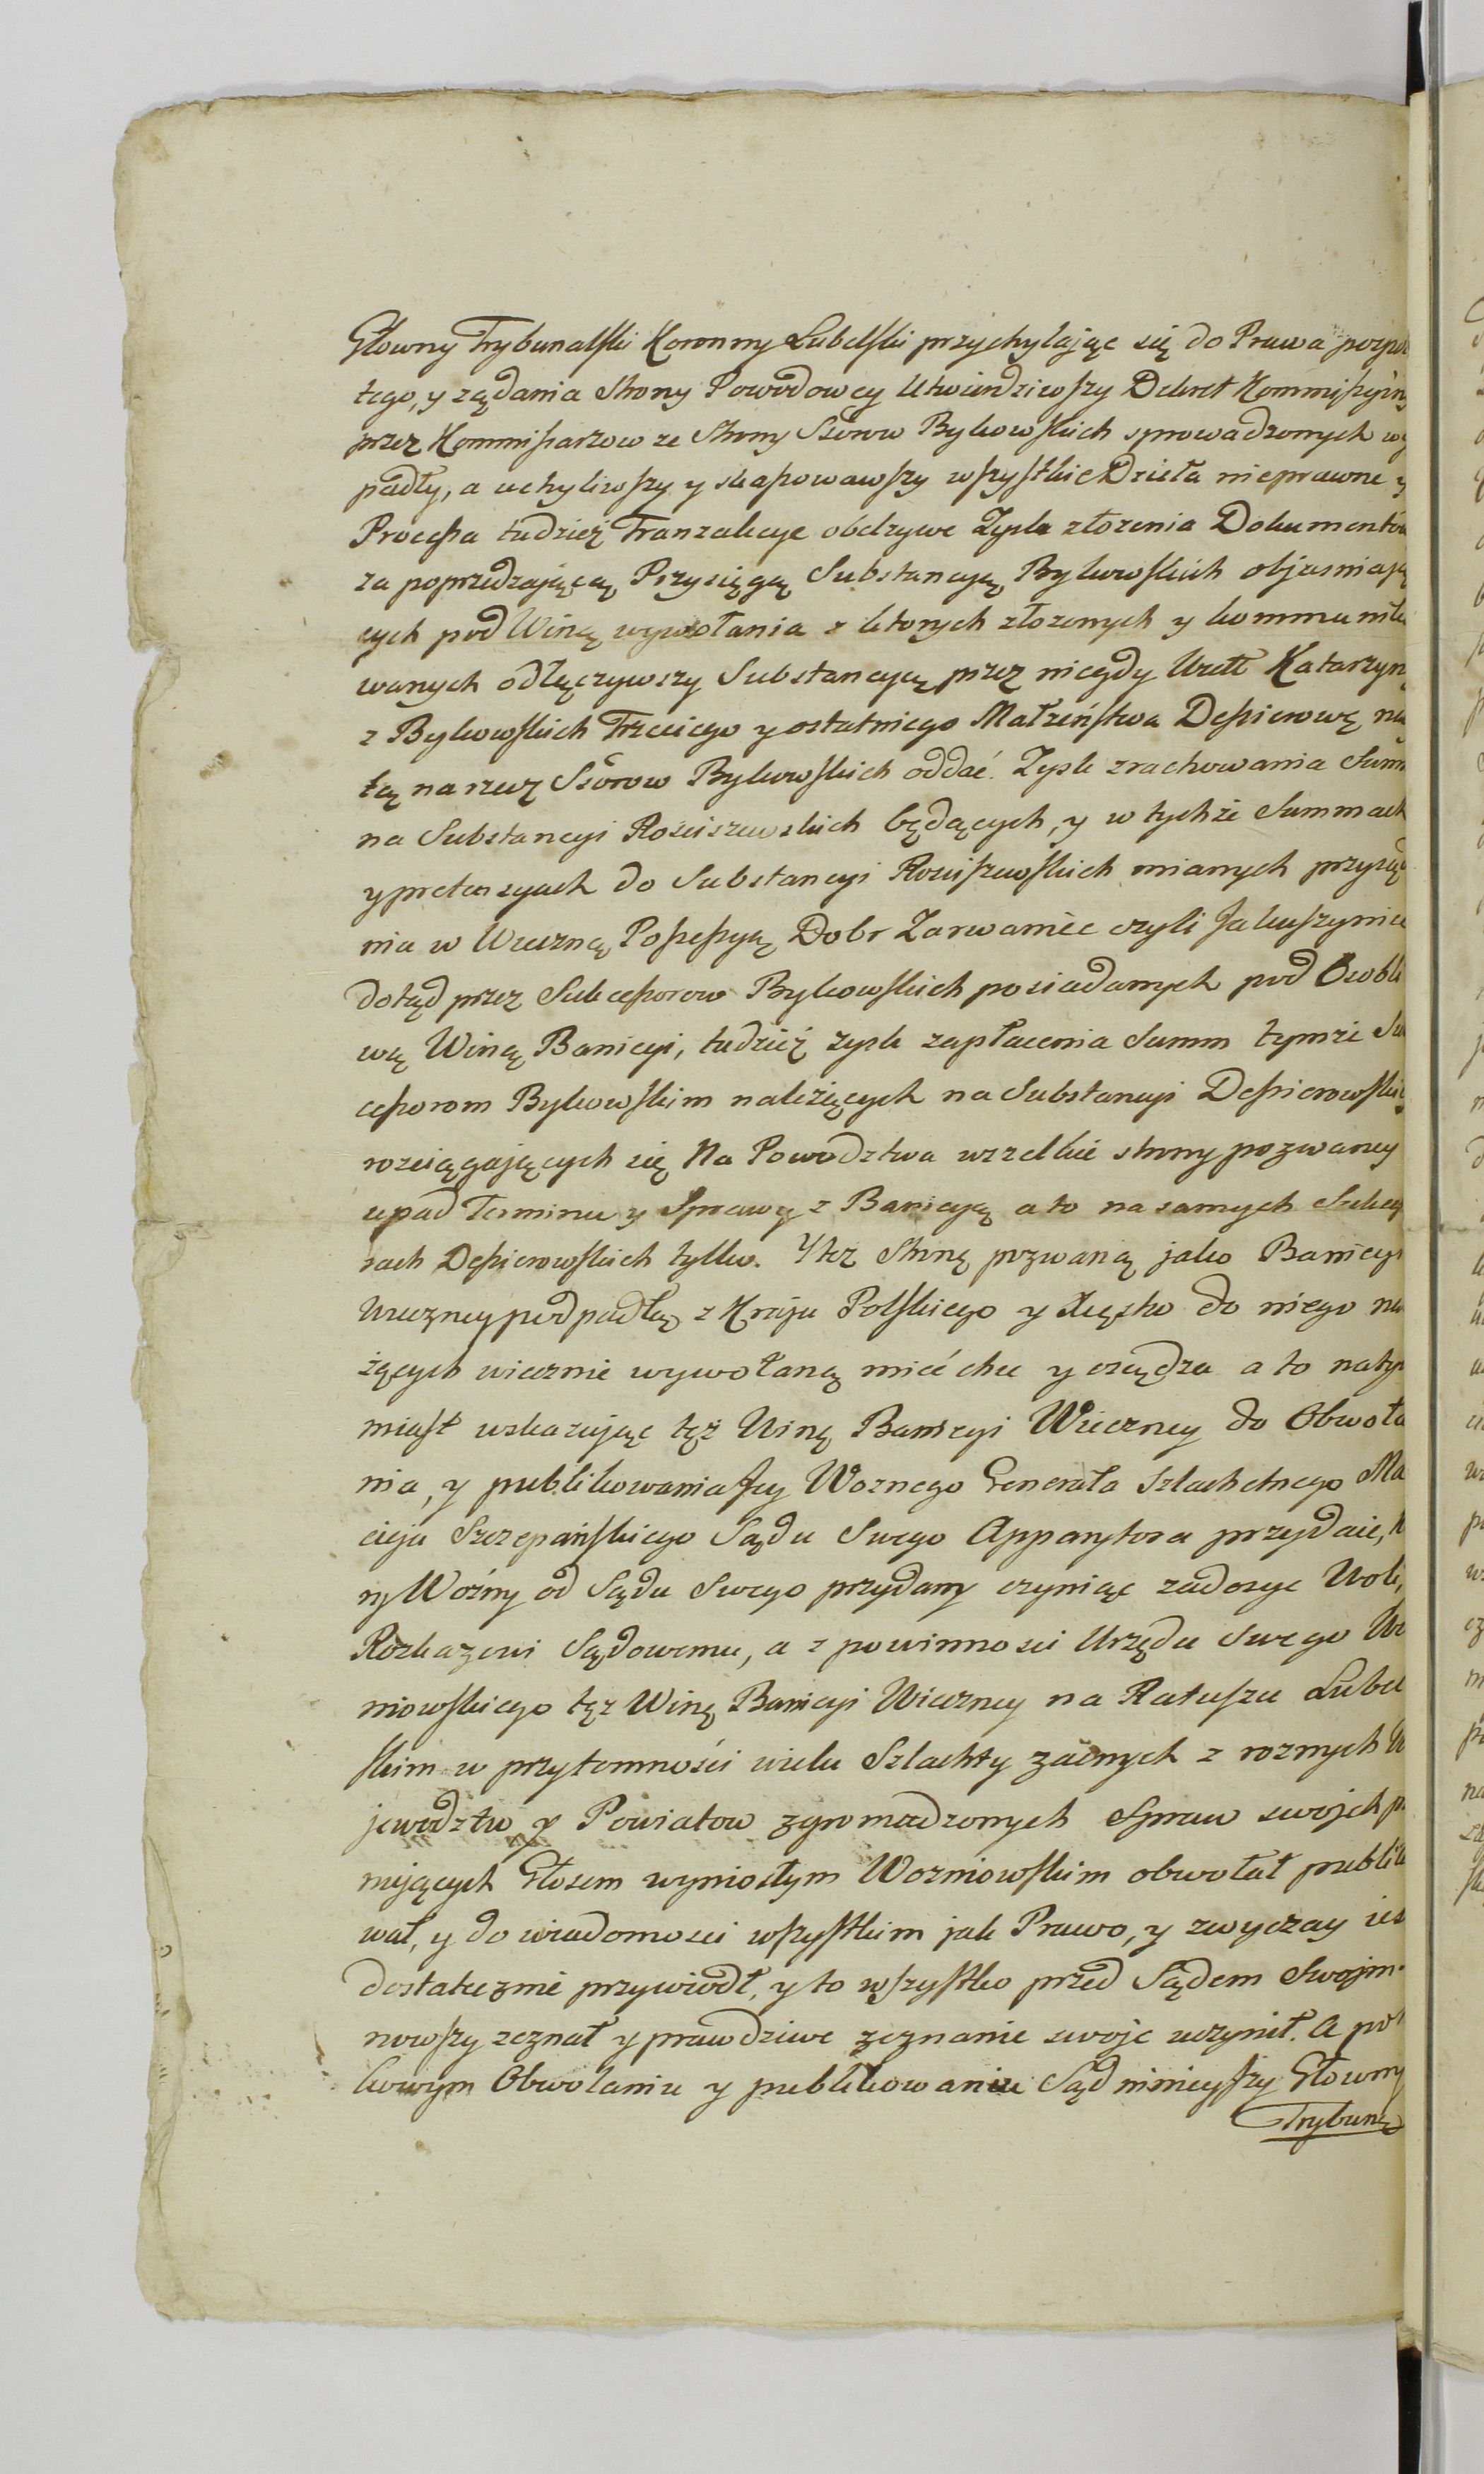 Głowny Trybunalski Koronny Lubelski przychylając się do Prawa pospoli
tego, y ządania Strony Powodowey Utwierdziwszy Dekret Kommissyiny
przez Kommissarzow ze Strony Sśorow Bykowskich sprowadzonych wy
padły, a uchyliwszy y skassowawszy wszystkie Dzieła nieprawne y
Processa tudzież Tranzakcye obelzywe Zysk złozenia Dokumentów
za poprzedzającą Przysięgą Substancyą Bykowskich objasniają
cych pod Winą wywołania z ktorych złozonych y kommuniko
wanych odłączywszy Substancyą przez niegdy Urdł Katarzyną
z Bykowskich Trzeciego y ostatniego Małzeństwa Dessierową na
tą na rzecz Sśorow Bykowskich oddać. Zysk zrachowania Summ
na Substancyi Rosciszewskich będących, y w tychże Summach
y pretensyach do Substancyi Rosciszewskich mianych przysądze
nia w Wieczną Possessyą Dobr Zarwaniec czyli Jakuszyniec
dotąd przez Sukcessorow Bykowskich posiadanych pod Osobli
wą Winą Banicyi, tudzież zysk zapłacenia Summ tymże Suk
cessorom Bykowskim należących na Substancyi Dessierowskiey
rozciągających się Na Powodztwa wszelkie strony pozwaney
upad Terminu y Sprawy z Banicyą a to na samych Sukcesso
rach Dessierowskich tylko. Ytęz Stronę pozwaną jako Banicyi
Wieczney podpadłą z Kraju Polskiego y Xięstw do niego nale
żących wiecznie wywołaną mieć chce y osądza a to natych
miast wskazując tęż Winę Banicyi Wieczney do Obwoła
nia, y publikowania Jey Woznego Generała Szlachetnego Ma
cieja Szczepańskiego Sądu Swego Apparytora przydaie, kto
ry Woźny od Sądu Swego przydany czyniąc zadosyc Woli,
Rozkazowi Sądowemu, a z powinnosci Urzędu Swego Wo
zniowskiego tęz Winę Banicyi Wieczney na Ratuszu Lubel
skim w przytomności wielu Szlachty zacnych z roznych Wo
jewodztw y Powiatow zgromadzonych Spraw swojch pil
nujących Głosem wyniosłym Wozniowskim obwołał publiko
wał, y do wiadomosci wszystkim jak Prawo, y zwyczay iest
dostatecznie przywiodł, y to wszystko przed Sądem Swojm
nowszy zeznał y prawdziwe zeznanie swoje uczynił. A po ta
kowym Obwołaniu y publikowaniu Sąd ninieyszy Głowny
Trybuna